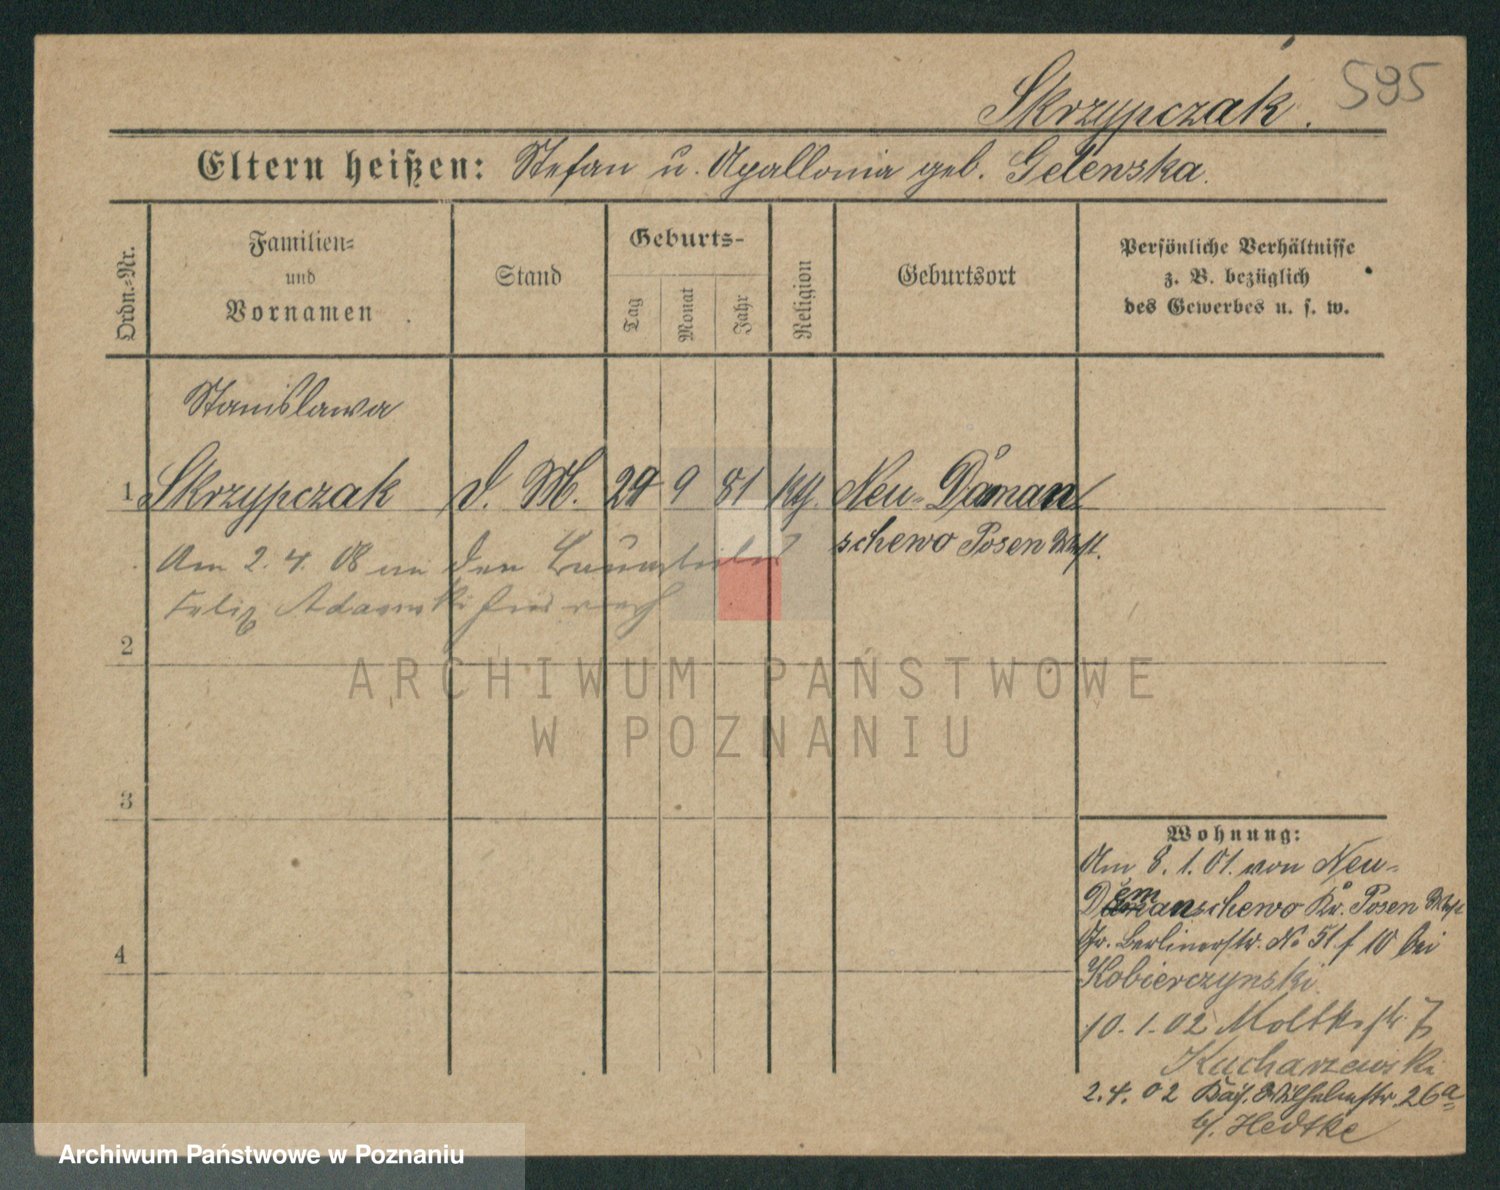 595
Skrzypczak.
Eltern heißen: Stefan u. Apallonia geb. Gelenska.
Ordn.-Nr.
Familien- und Vornamen
Stand
Geburts-
Tag
Monat
Jahr
Religion
Geburtsort
Persönliche Verhältnisse
z. B. bezüglich
des Gewerbes u. s. w.
Stanislawa
1 Skrzypczak d. M. 29 9 81 kth. Neu-Daman
schewo Posen West.
Am 2. 4. 08 an den
Felix Adamski
2
3
4
Wohnung:
Am 8. 1. 01. von Neu-
Demanschewo Kr. Posen West
Gr. Berlinerstr. No 51 f 10 bei
Kobierczynski.
10. 1. 02 Moltkestr. 7
Kucharzewski
2. 4. 02 Kais. Wilhelmstr. 26a
b/. Hedtke
ARCHIWUM PAŃSTWOWE
W POZNANIU
Archiwum Państwowe w Poznaniu